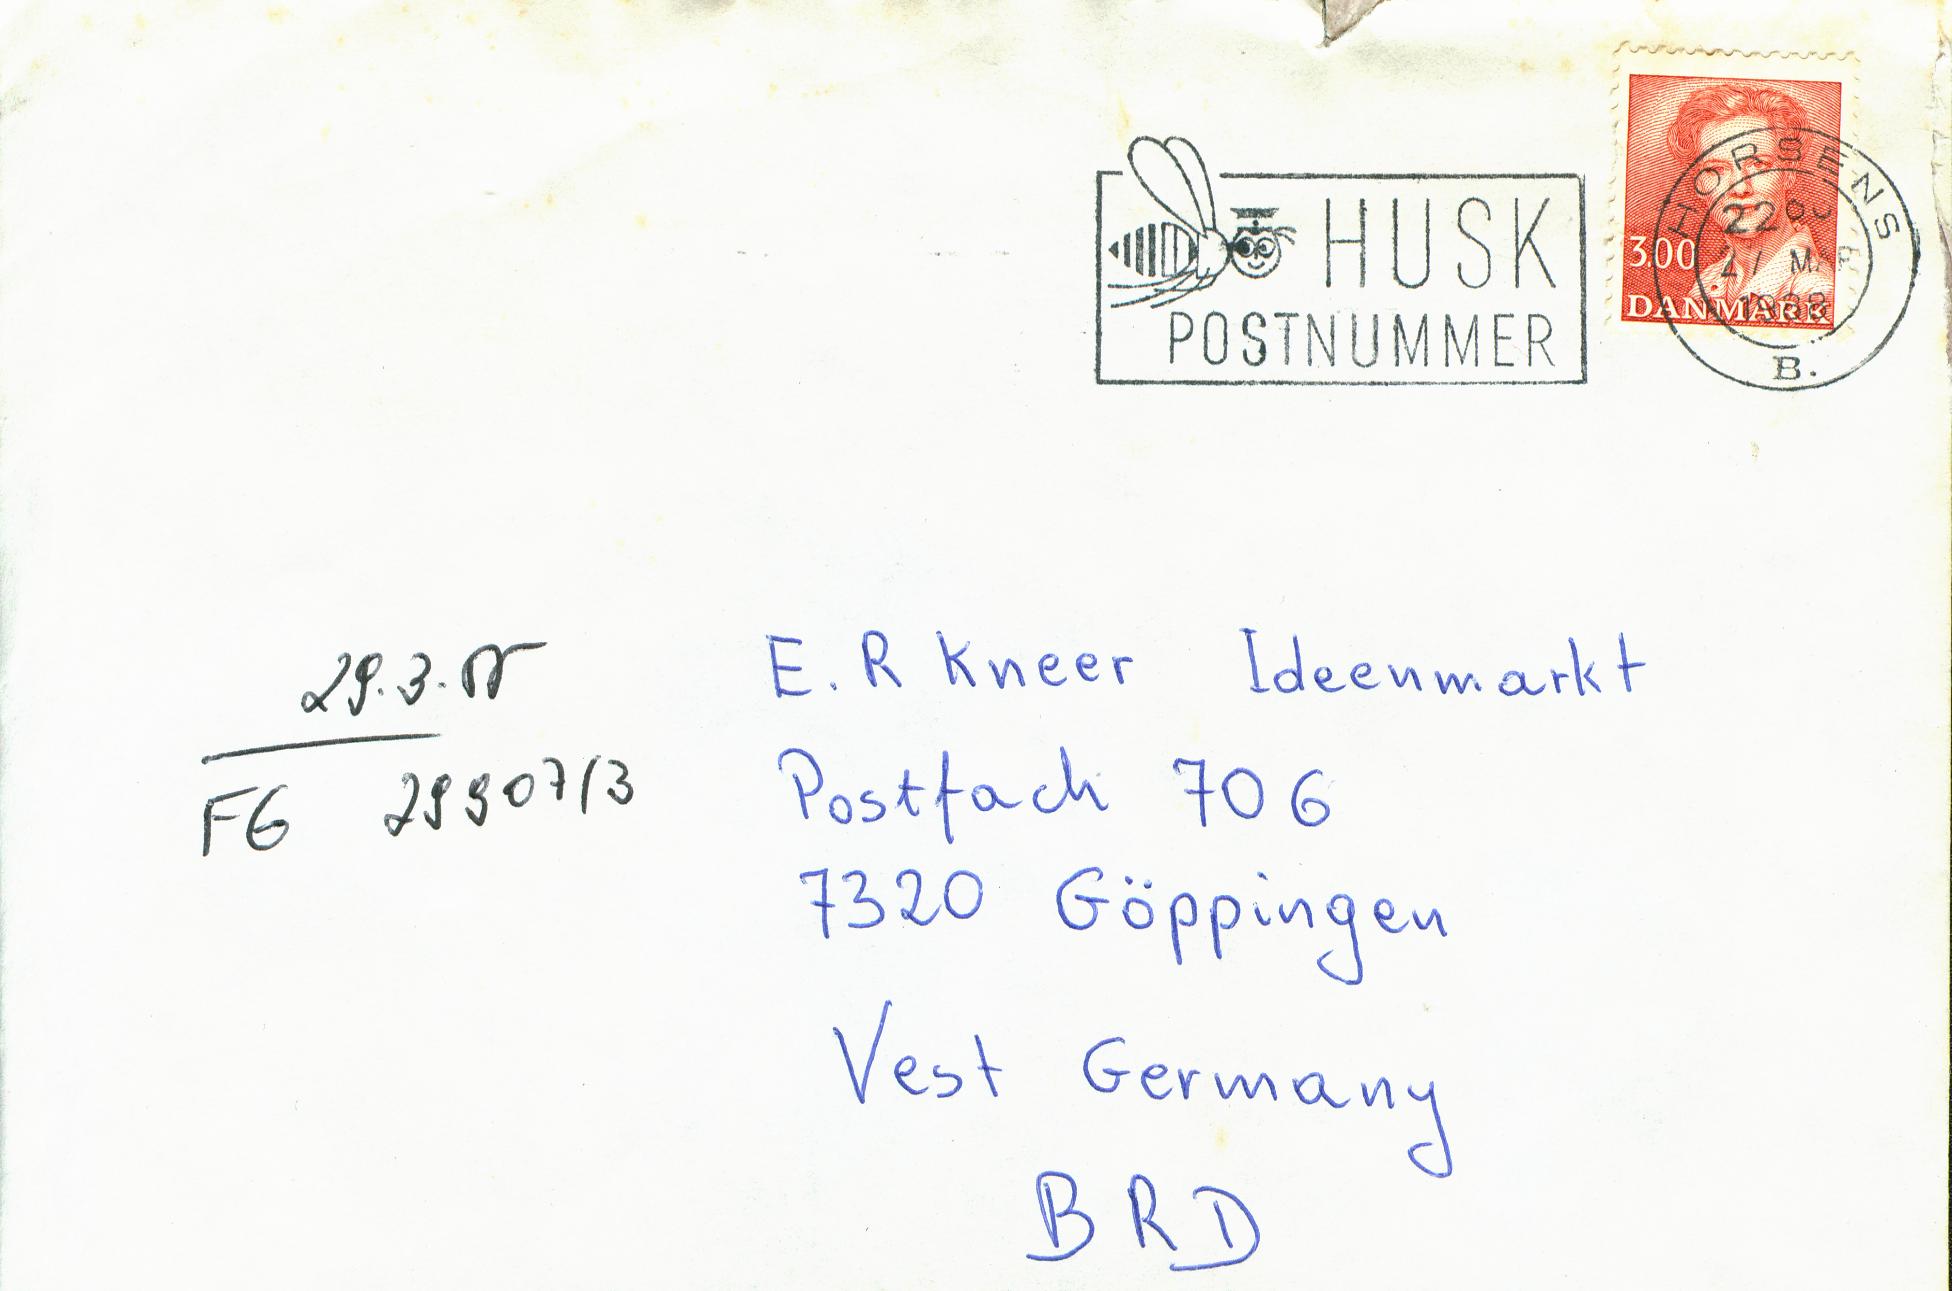 HUSK
POSTNUMMER
3.00
DANMARK
HORSENS
22
27 MAR
1988
B.
29.3.
FG 29907/3
E. R Kneer Ideenmarkt
Postfach 706
7320 Göppingen
Vest Germany
BRD